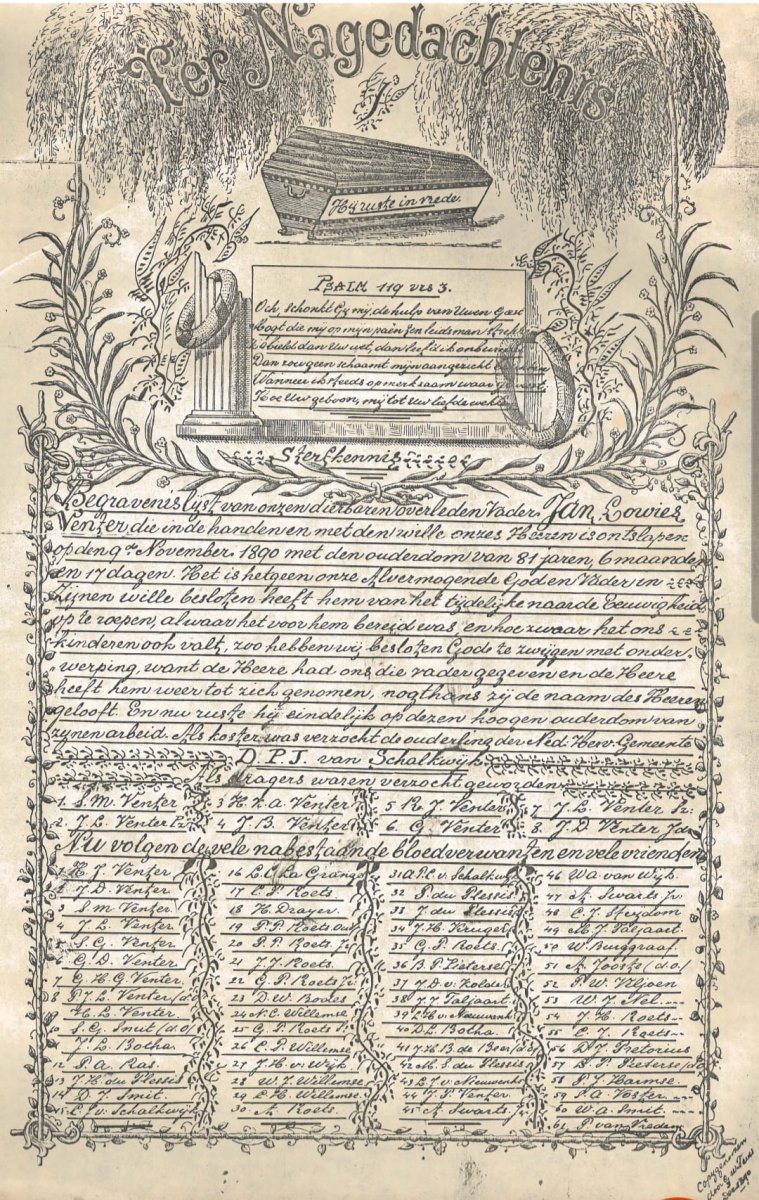 Ter Nagedachtenis
Hij ruste in vrede.
PSALM 119 vrs 3.
Och, schonkt Gij mij de hulp van Uwen Geest
Mogt die mij op mijn paán ten leidsman
dan Uw wet, dan leefd ik
Dan zou geen schaamt mijn aangezicht
Wanneer ik steeds opmerksaam waar geweest,
Hoe Uw geboon, mij tot Uw liefde
Sterfkennis
Begravenislijst van onzen dierbaren overleden Vader Jan Lowies
Venter, die in de handen en met den wille onzes Heeren is ontslapen
op den 9de November 1890 met den ouderdom van 81 jaren, 6 maanden
en 17 dagen. Het is hetgeen onze Alvermogende God en Vader in
Zijnen wille besloten heeft hem van het tijdelijke naar de Eeuwigheid
op te roepen, alwaar het voor hem bereid was en hoe zwaar het ons
kinderen ook valt, zoo hebben wij besloten Gode te zwijgen met onder-
werping, want de Heere had ons die vader gegeven en de Heere
heeft hem weer tot zich genomen, nogthans zij de naam des Heeren
gelooft. En nu ruste hij eindelijk op dezen hoogen ouderdom van
zynen arbeid. Als koster was verzocht de ouderling der Ned: Herv: Gemeente
D. P. J. van Schalkwijk
Als dragers waren verzocht geworden
1. S. M. Venter 3 H. v. a. Venter 5 R. J. Venter 7 J. L. Venter Sr:
2. J. L. Venter Pz 4 J. B. Venter 6. G. Venter 8 J. D. Venter Jdz
Nu volgen de vele nabestaande bloedverwanten en vele vrienden
1 H. J. Venter
2 J. D. Venter
3 S. M. Venter
4 J. L. Venter
5 S. G. Venter
C. D. Venter
7 G. H. G. Venter
8 P. J. L. Venter
H. L. Venter
10 S. G. Smit (d.o)
J. L. Botha
12 P. A. Ras.
13 J. H. du Plessis
14 D. J. Smit.
15 C. J. v. Schalkwijk
16 L. C. La Grange
17 C. P. Roets
18 H. Drayer
19 P. P. Roets Oud
20 P. P. Roets Jr
21 J. J. Roets
22 G. P. Roets Jr
23 D. W. Bodes
24 N. C. Willemse
25 G. P. Roets
26 C. P. Willemse
27 J. H. v. Wijk
28 W. J. Willemse
29 L. H. Willemse
30 A. Roets
31 A. P. C. v. Schalkwyk
32 P. du Plessis
33 J. du Plessis
34 J. H. Kruger
35 G. P. Roets
36 B. P. Pieterse
37 J. D. v.
38 J. J. Taljaart
39 L. H. v. Nieuwenh
40 D. L. Botha
41 J. H. B. de Beer
42 M. S. du Plessis
43 L. J. v. Nieuwenh
44 J. P. Venter
45 A. Swarts Jr
46 W. A. van Wijk
47 A. Swarts Sr
48 C. J. Sterzdom
49 M. J. Taljaart
50 W. Burggraaf
51 A. Jooste (d.o)
52 P. W. Viljoen
53 W. J. Nel
54 J. H. Roets
55 C. J. Roets
56 D. J. Pretorius
57 B. P. Pieterse
58 P. J. Harmse
59 P. A. Voster
60 W. A. Smit
61 P. van Vreden